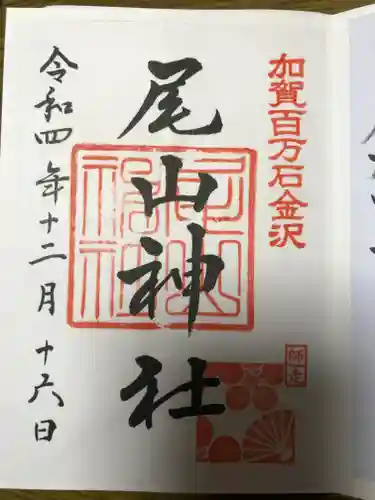 加賀百万石金沢
尾山神社
尾山神社
師走
令和四年十二月十六日